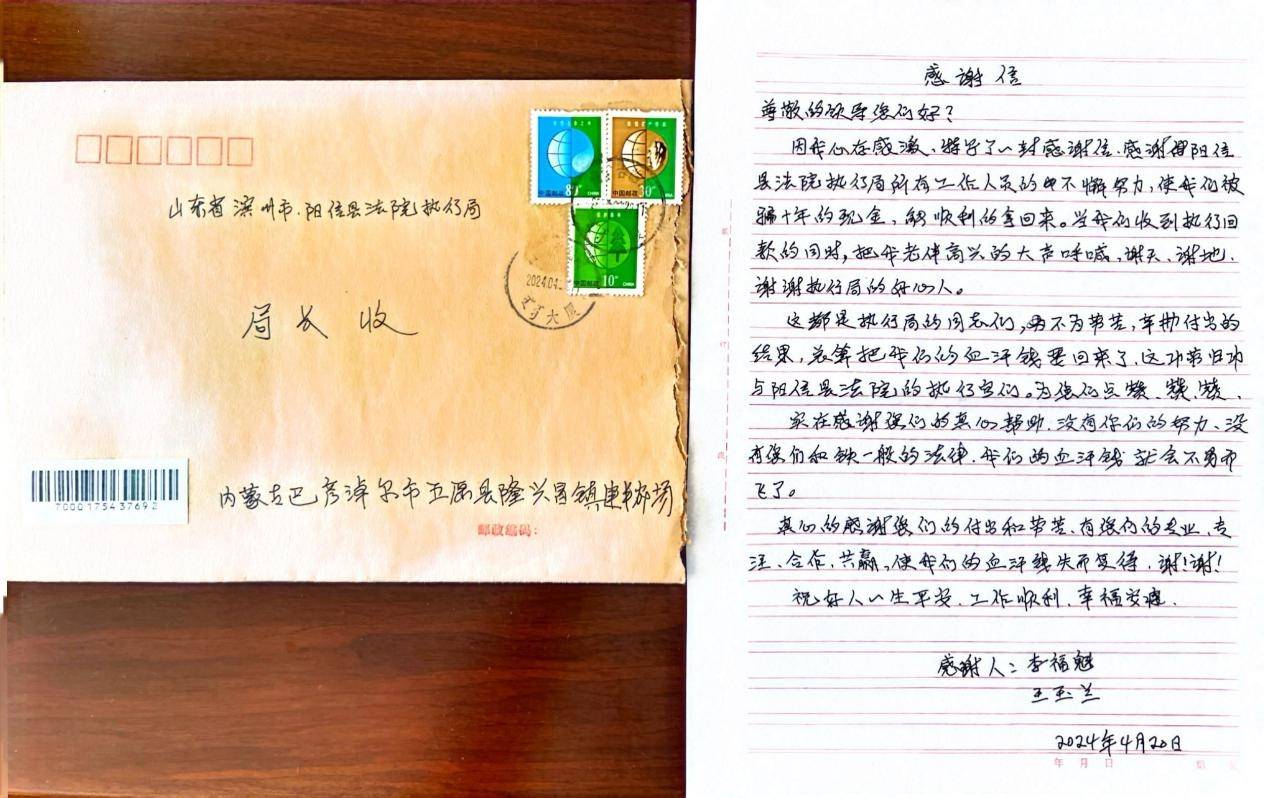 山东省滨州市.阳信县法院执行局
局长 收
7000175437692
内蒙古巴彦淖尔市五原县隆兴昌镇
邮政编码:
80分
中国邮政 CHINA
30分
中国邮政 CHINA
10分
中国邮政 CHINA
2024.04.
大厦
感谢信
尊敬的领导您们好?
因我心存感激、特写了一封感谢信.感谢阳信
县法院执行局所有工作人员的不懈努力,使我们被
骗十年的现金,能顺利的拿回来。当我们收到执行回
款的同时,把我老伴高兴的大声呼喊,谢天、谢地.
谢谢执行局的好心人。
这都是执行局的同志们,不为劳苦,辛勤付出的
结果,总算把我们的血汗钱要回来了,这功劳归功
与阳信县法院的执行官们。为您们点赞、赞、赞、
实在感谢您们的真心帮助.没有你们的努力、没
有您们和铁一般的法律.我们的血汗钱就会不翼而
飞了。
真心的感谢您们的付出和劳苦.有您们的专业、专
注、合作、共赢,使我们的血汗钱失而复得,谢!谢!
祝好人一生平安.工作顺利.幸福安康.
感谢人:李福魁
王玉兰
2024年4月20日
年 月 日